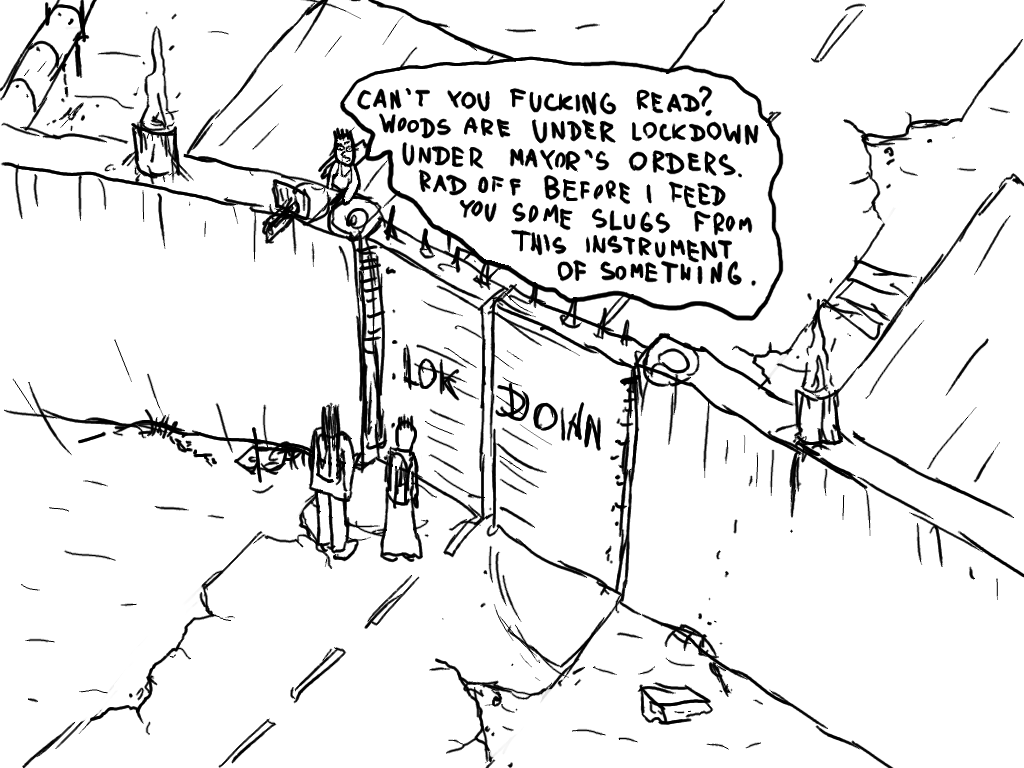 CAN'T YOU FUCKING READ?
WOODS ARE UNDER LOCKDOWN
UNDER MAYOR'S ORDERS.
RAD OFF BEFORE I FEED
YOU SOME SLUGS FROM
THIS INSTRUMENT
OF SOMETHING.
LOK DOWN